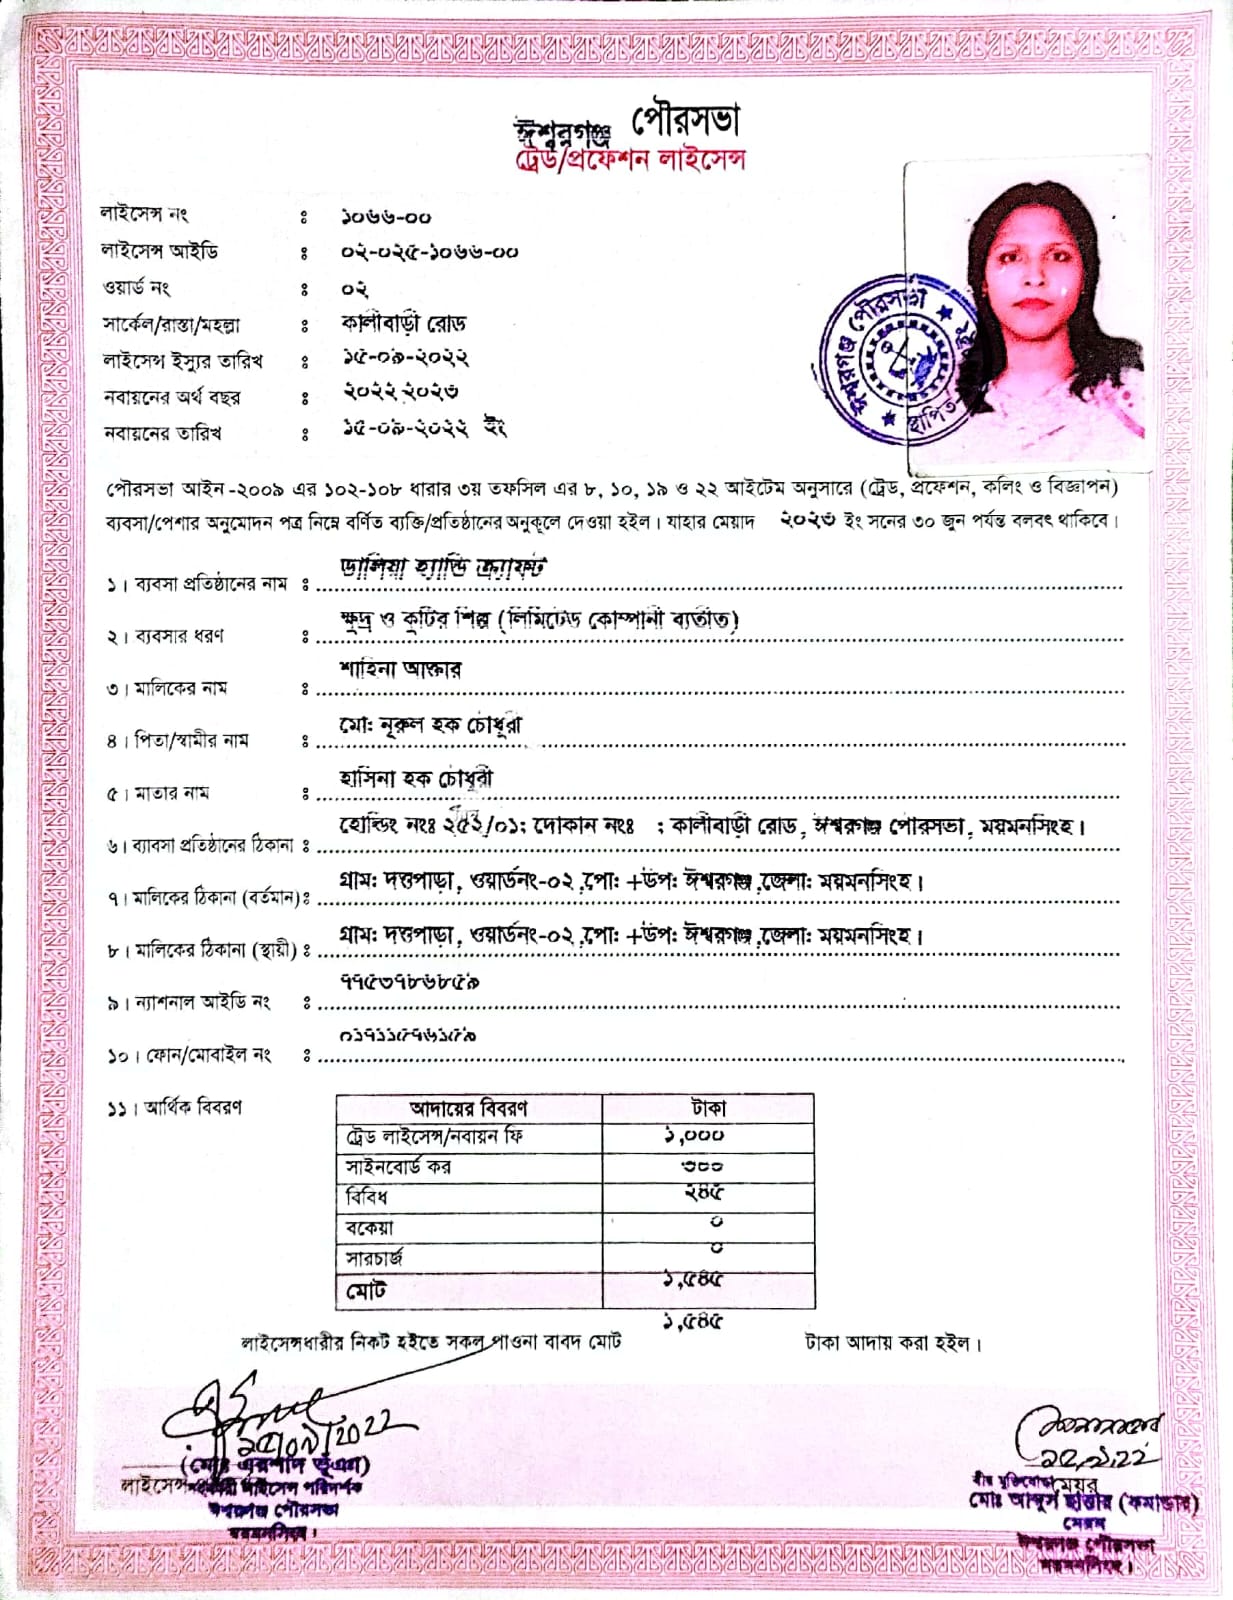 ঈশ্বরগঞ্জ পৌরসভা
ট্রেড/প্রফেশন লাইসেন্স
লাইসেন্স নং : ১০৬৬-০০
লাইসেন্স আইডি : ০২-০২৫-১০৬৬-০০
ওয়ার্ড নং : ০২
সার্কেল/রাস্তা/মহল্লা : কালীবাড়ী রোড
লাইসেন্স ইস্যুর তারিখ : ১৫-০৯-২০২২
নবায়নের অর্থ বছর : ২০২২.২০২৩
নবায়নের তারিখ : ১৫-০৯-২০২২ ইং
ঈশ্বরগঞ্জ পৌরসভা
স্থাপিত
পৌরসভা আইন -২০০৯ এর ১০২-১০৮ ধারার ৩য় তফসিল এর ৮, ১০, ১৯ ও ২২ আইটেম অনুসারে (ট্রেড, প্রফেশন, কলিং ও বিজ্ঞাপন)
ব্যবসা/পেশার অনুমোদন পত্র নিম্নে বর্ণিত ব্যক্তি/প্রতিষ্ঠানের অনুকূলে দেওয়া হইল। যাহার মেয়াদ ২০২৩ ইং সনের ৩০ জুন পর্যন্ত বলবৎ থাকিবে।
১। ব্যবসা প্রতিষ্ঠানের নাম : ডালিয়া হ্যান্ডি ক্র্যাফট
২। ব্যবসার ধরণ : ক্ষুদ্র ও কুটির শিল্প (লিমিটেড কোম্পানী ব্যতীত)
৩। মালিকের নাম : শাহিনা আক্তার
৪। পিতা/স্বামীর নাম : মো: নূরুল হক চৌধুরী
৫। মাতার নাম : হাসিনা হক চৌধুরী
৬। ব্যাবসা প্রতিষ্ঠানের ঠিকানা : হোল্ডিং নংঃ ২৫২/০১; দোকান নংঃ ; কালীবাড়ী রোড, ঈশ্বরগঞ্জ পৌরসভা, ময়মনসিংহ।
৭। মালিকের ঠিকানা (বর্তমান) : গ্রাম: দত্তপাড়া, ওয়ার্ডনং-০২,পো: +উপ: ঈশ্বরগঞ্জ,জেলা: ময়মনসিংহ।
৮। মালিকের ঠিকানা (স্থায়ী) : গ্রাম: দত্তপাড়া, ওয়ার্ডনং-০২,পো: +উপ: ঈশ্বরগঞ্জ,জেলা: ময়মনসিংহ।
৯। ন্যাশনাল আইডি নং : ৭৭৫৩৭৮৬৮৫৯
১০। ফোন/মোবাইল নং : ০১৭১১৫৭৬১৫৯
১১। আর্থিক বিবরণ
আদায়ের বিবরণ টাকা
ট্রেড লাইসেন্স/নবায়ন ফি ১,০০০
সাইনবোর্ড কর ৩০০
বিবিধ ২৪৫
বকেয়া ০
সারচার্জ ০
মোট ১,৫৪৫
লাইসেন্সধারীর নিকট হইতে সকল পাওনা বাবদ মোট ১,৫৪৫ টাকা আদায় করা হইল।
১৫/০৯/2022
(মোঃ এরশাদ ভূঁঞা)
লাইসেন্স পরিদর্শক
ঈশ্বরগঞ্জ পৌরসভা
ময়মনসিংহ।
১৫.৯.২২
বীর মুক্তিযোদ্ধা
মেয়র
মোঃ আব্দুস ছাত্তার (কমান্ডার)
মেয়র
ঈশ্বরগঞ্জ পৌরসভা
ময়মনসিংহ।